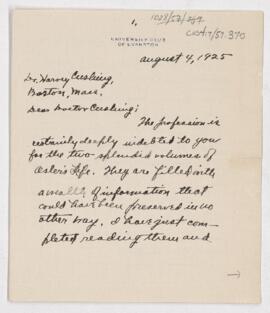 1.
UNIVERSITY CLUB
OF EVANSTON
August 4, 1925
Dr. Harvey Cushing,
Boston, Mass.
Dear Doctor Cushing;
The profession is
certainly deeply indebted to you
for the two splendid volumes of
Osler's life. They are filled with
a wealth of information that
could have been preserved in no
other way. I have just com-
pleted reading them and
→